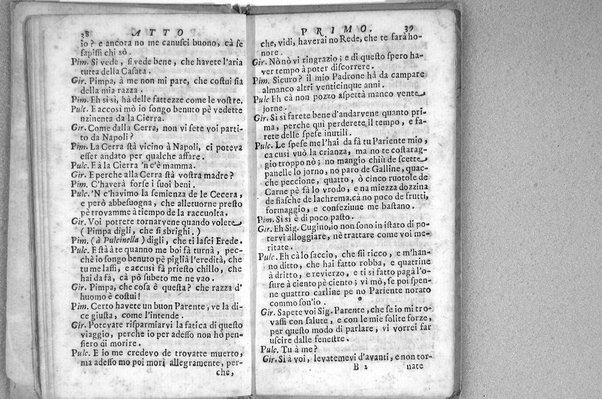 38 ATTO
io? e ancora no me canusci buono, cà se
sapissi chi sò.
Pim. Si vede, si vede bene, che havete l'aria
tutta della Casata.
Gir. Pimpa, à me non mi pare, che costui sia
della mia razza.
Pim. Eh si sì, hà delle fattezze come le vostre.
Pulc. E accosi mò io songo benuto pè vedette
nzinenta da la Cierra.
Gir. Come dalla Cerra, non vi sete voi parti-
to da Napoli?
Pim. La Cerra stà vicino à Napoli, ci poteva
esser andato per qualche affare.
Pulc. E à la Cierra 'n c'è mamma.
Gir. E perche alla Cerra stà vostra madre?
Pim. C'haverà forse i suoi beni.
Pulc. 'N c'havimo la semienza de le Cecera,
e però abbesuogna, che alletuorne presto
pè trovamme à tiempo de la raccuolta.
Gir. Voi potrete tornarvene quando volete
( Pimpa digli, che si sbrighi. )
Pim. (à Pulcinella) digli, che ti lassi Erede.
Pulc. E stà à te quanno me boi fà turnà, pec-
chè io songo benuto pè piglià l'eredità, che
tu me lassi, e accusì fà priesto chillo, che
hai da fà, cà pò subeto me ne vao.
Gir. Pimpa, che cosa è questa? che razza d'
huomo è costui!
Pim. Certo havete un buon Parente, ve la di-
ce giusta, come l'intende.
Gir. Potevate risparmiarvi la fatica di questo
viaggio, perche io per adesso non hò pen-
siero di morire.
Pulc. E io me credevo de trovatte muerto,
ma adesso mo poi mori allegramente, per-
che,
PRIMO. 39
che, vidi, haverai no Rede, che te farà ho-
nore.
Gir. Nò nò vi ringrazio; e di questo spero ha-
ver tempo à poter discorrere.
Pim. Sicuro? il mio Padrone hà da campare
almanco altri venticinque anni.
Pulc. Eh cà non pozzo aspettà manco vente
jorne.
Gir. Si si farete bene d'andarvene quanto pri-
ma, perche qui perderete il tempo, e fa-
rete delle spese inutili.
Pulc. Le spese me l'hai da fà tu Pariente mio,
ca cusì vuò la crianza, ma no te costarag-
gio troppo nò; no mangio chiù de scette
panelle lo jorno, no paro de Galline, quac-
che peccione, quatto, ò cinco ruotole de
Carne pè fà lo vrodo, e na miezza dozzina
de fiasche de lachrema. cà no poco de frutti,
formaggio, e confeziune me bastano.
Pim. Si sì è di poco pasto.
Gir. Eh Sig. Cugino, io non sono in istato di po-
tervi alloggiare, nè trattare come voi me-
ritate.
Pulc. Eh cà lo saccio, che sii ricco, e m'han-
no ditto, che hai fatto robba, e quattrine
à dritto, e revierzo, e ti si fatto pagà l'o-
sure à ciento pè ciento; vi mò, se poi spen-
ne quattro carline pe no Pariente norato
commo son'io.
Gir. Sapete voi Sig. Parente, che se io mi tro-
vassi con salute, e con le mie solite forze,
per questo modo di parlare, vi vorrei far
uscire dalle fenestre.
Pulc. Tu à me?
Gir. Si à voi, levatemevi d'avanti, e non tor-
B 2 nate